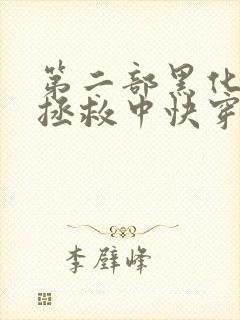 第二部黑化
拯救中快穿
李璧峰